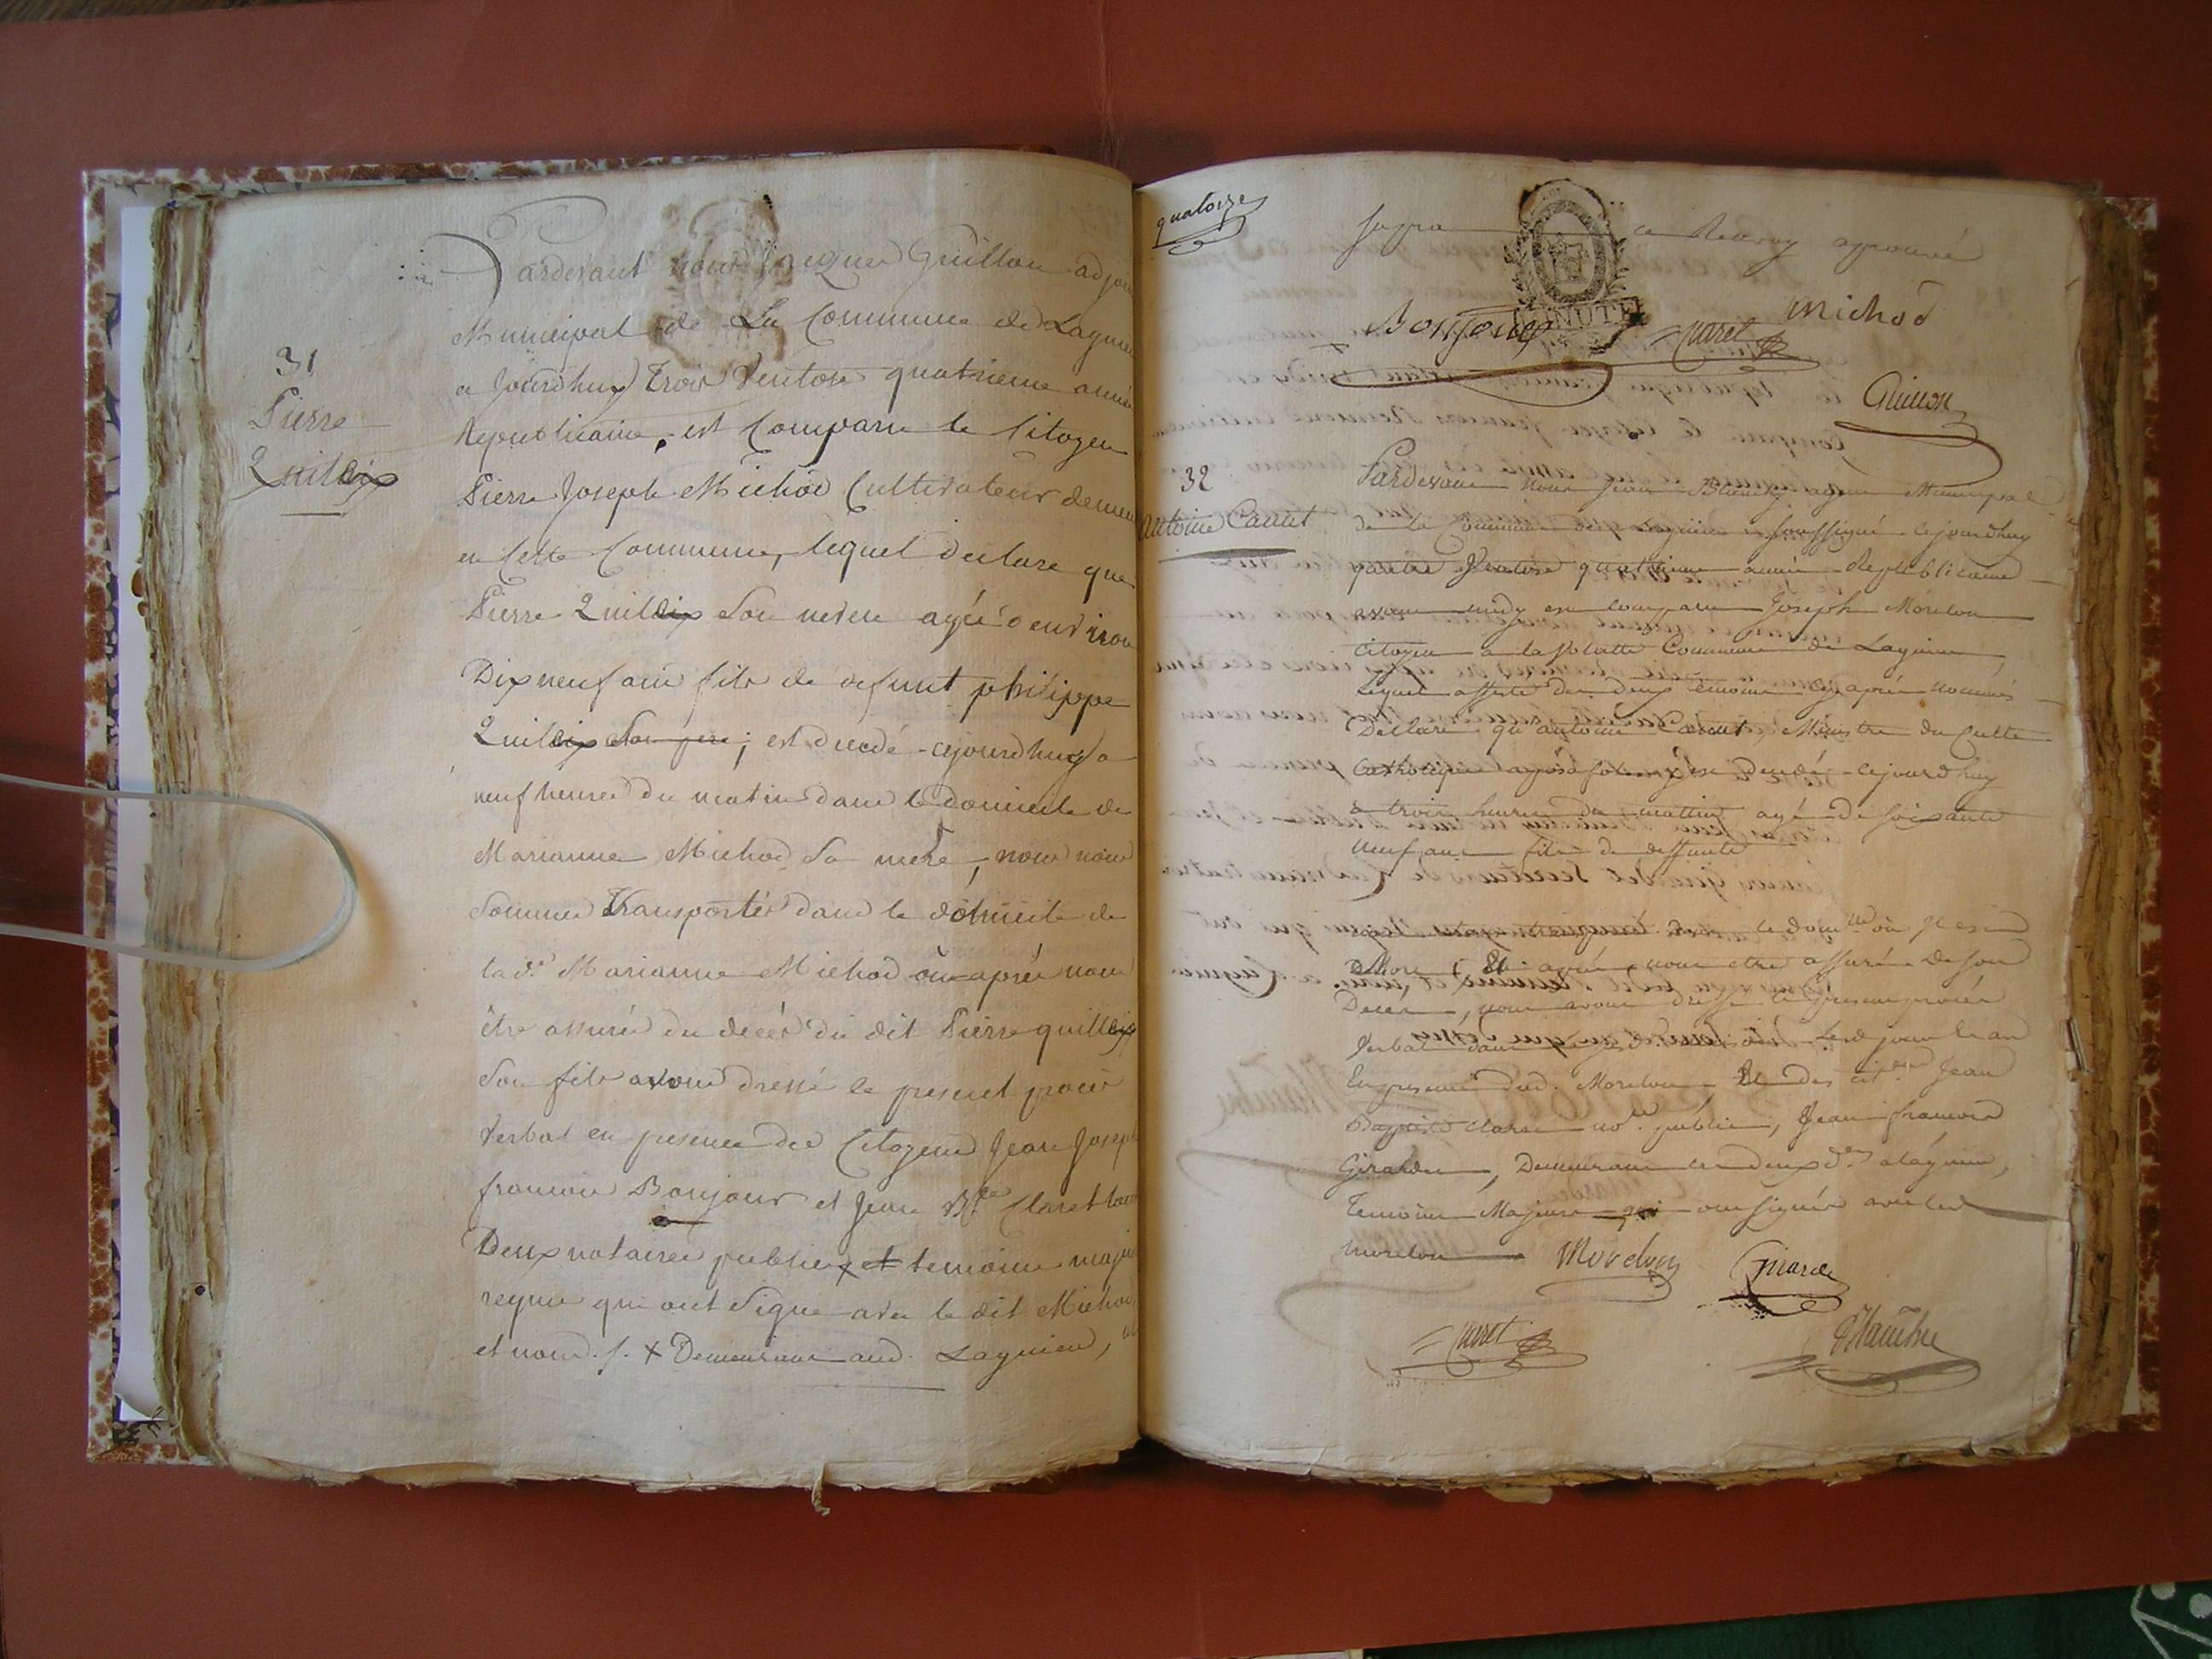 31
Pierre
Quillix
Pardevant nous Jacques Guillon adjoin
Municipal de La Commune de Lagnieu
a jourdhuy Trois Ventose quatrieme année
Republicaine, est Comparu le Citoyen
Pierre Joseph Michod Cultivateur demeu
en Cette Commune, lequel declare que
Pierre Quillix Son neveu agée denviron
Dix neuf ans fils de defunt philippe
Quillix Son pere; est décédé cejourdhuy a
neuf heures du matin dans le domicile de
Marianne Michod Sa mere, nous nous
Sommes Transportés dans le domicile de
la d.e Marianne Michod où après nous
être assurés du decés du dit Pierre quillix
Son fils avons dressé le present procès
Verbal en presence des Citoyens Jean Joseph
francois Bonjour et Jean B.te Claret tous
Deux notaires publics x et temoins maje
requis qui ont Signé avec le dit Michod
et nous. /. x Demeurant aud. Lagnieu,
quatorze
ce Renvoy aprouvé
Bonjour
Claret
Michod
Guillon
32
Antoine Caniet
Pardevant Nous Jean agent Municipal
de la Commune de Lagnieu soussigné cejourdhuy
quatre Ventose quatrieme année Republicaine
avant midy est comparu Joseph Morelon
Citoyen a la Commune de Lagnieu,
Lequel assisté des deux témoins cy après nommés
Declare qu'antoine Ministre du Culte
Catholique est decedé cejourdhuy
a trois heures du mattin agé de soixante
neuf ans fils de deffunts
le dom.lle où il est
Mort, Et après nous etre assuré de son
Deces, nous avons dressé le present procès
Verbal dans lesd. jour et an
En presence dud. Morelon Et des cit.ens Jean
Baptiste Claret no.re public, Jean francois
Girardet, Demeurant les deux d. a lagnieu,
Temoins Majeurs qui ont signés avec led
Morelon
Morelon
Girardet
Claret